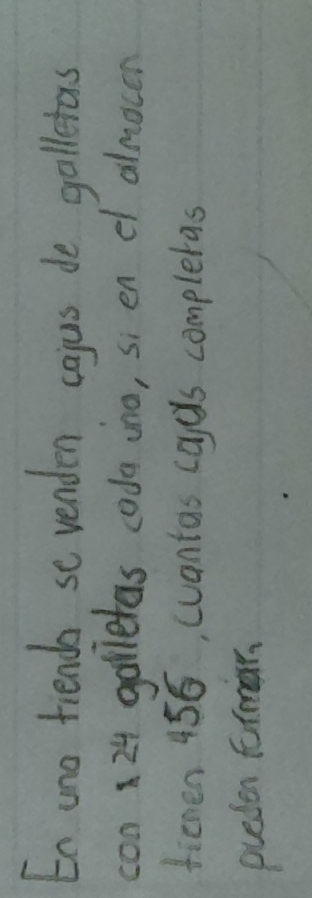 En una tienda se venden cajas de galletas
con 24 galletas cada una, si en el almacen
tienen 456, cuantas cajas completas
pueden formar.